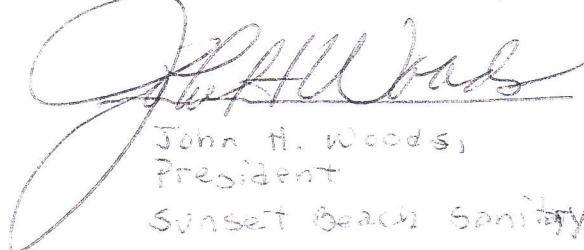 John H. Woods
John H. Woods,
President
Sunset Beach Sanitary